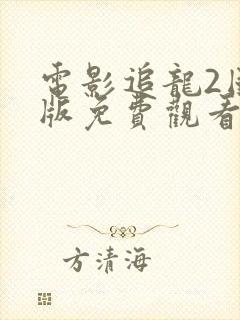 電影追龍2國
版免費觀看
方清海